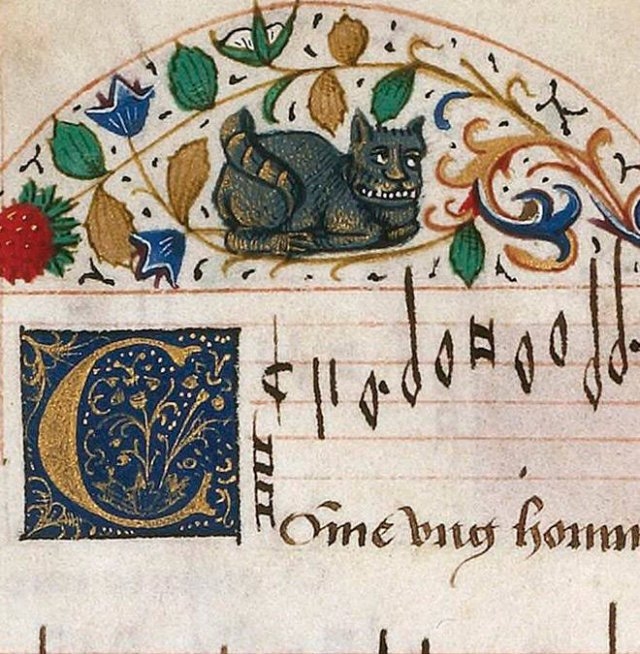 COme vng homm